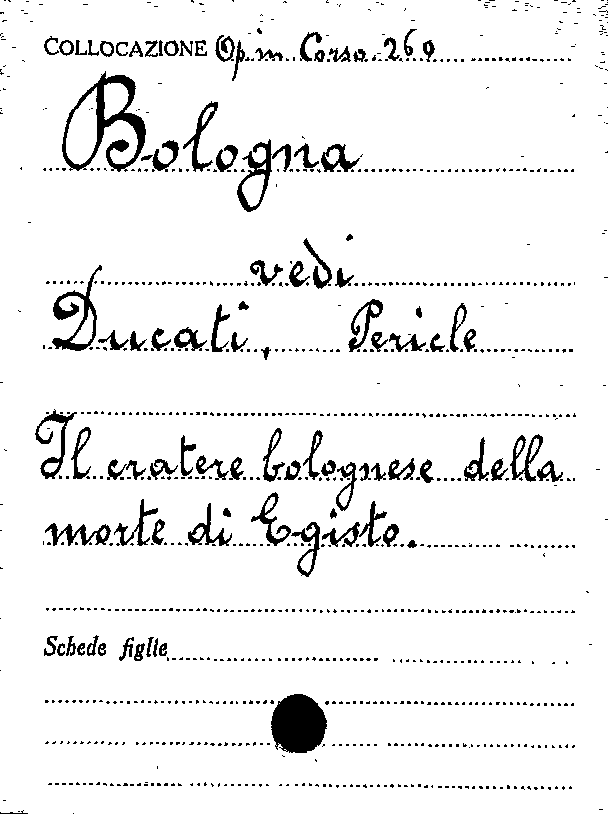 COLLOCAZIONE Op. in Corso. 260
Bologna
vedi
Ducati, Pericle
Il cratere bolognese della
morte di Egisto.
Schede figlie